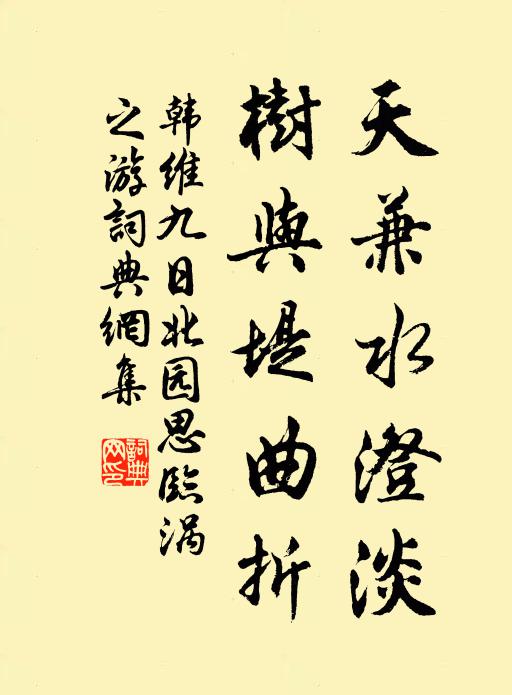 天兼水澄淡
樹與堤曲折
韩维九日北园思臨涡
之游詞典網集
詞典
网印